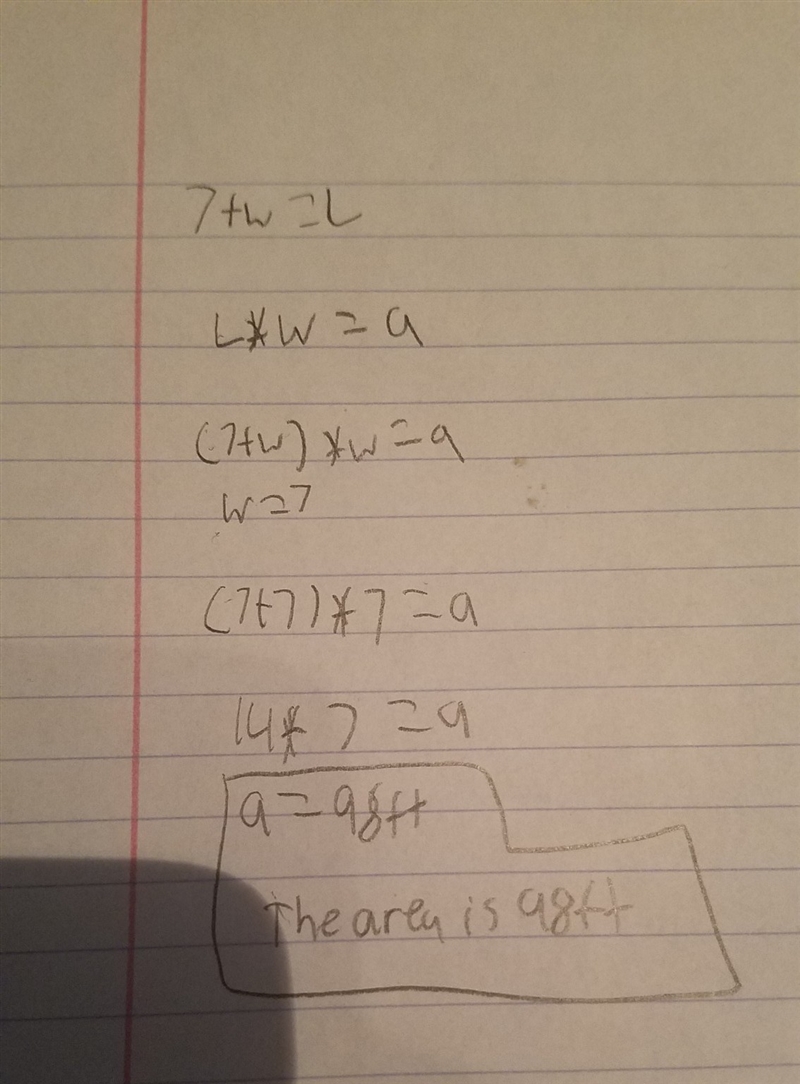 7+w=L
L*W=a
(7+w)*w=a
w=7
(7+7)*7=a
14*7=a
a=98ft
The area is 98ft